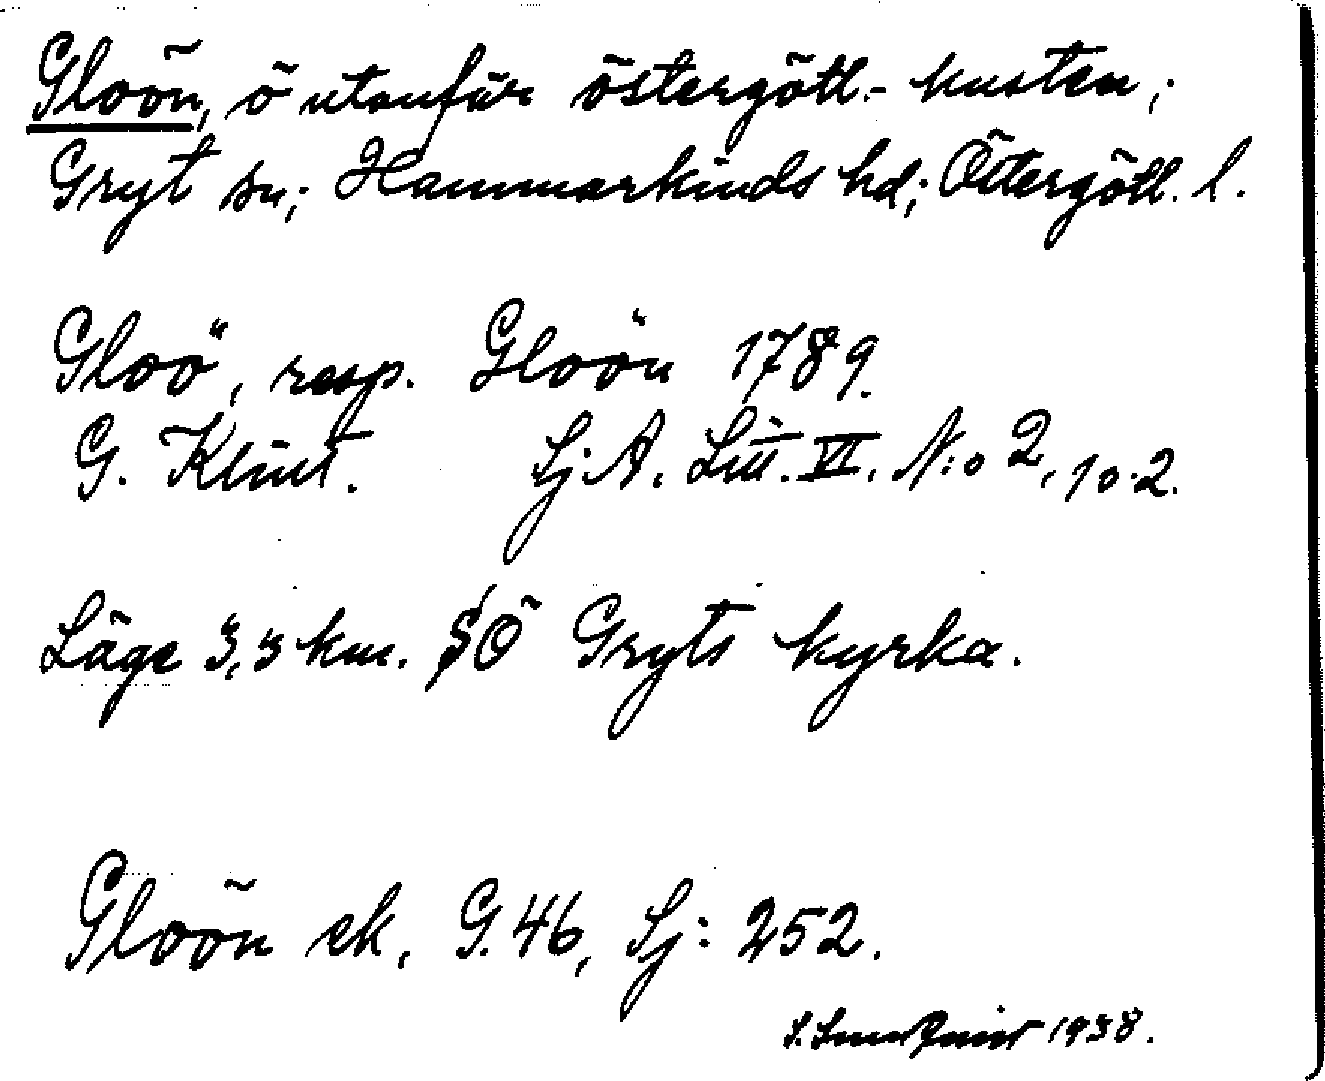 Gloön, ö utanför östergötl.- kusten;
Gryt sn; Hammarkinds hd; Östergötl. l.
Gloö, resp. Gloön 1789.
G. Klint. Sj.A. Litt. VI. N:o 2, 10.2.
Läge 3,3 km. SÖ Gryts kyrka.
Gloön ek, G. 46, Sj: 252.
1938.